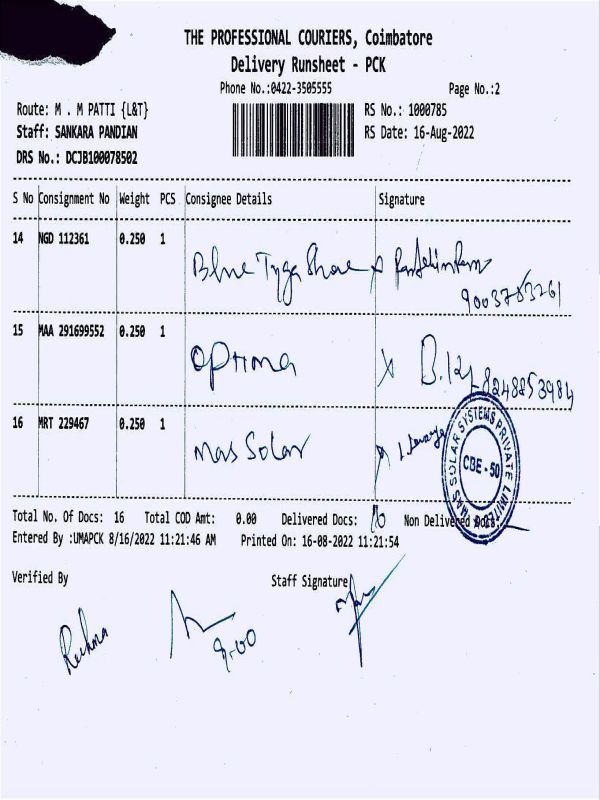 THE PROFESSIONAL COURIERS, Coimbatore
Delivery Runsheet - PCK
Phone No.:0422-3505555 Page No.:2
Route: M . M PATTI {L&T} RS No.: 1000785
Staff: SANKARA PANDIAN RS Date: 16-Aug-2022
DRS No.: DCJB100078502
S No Consignment No Weight PCS Consignee Details Signature
14 NGD 112361 0.250 1
Blue Tyga Shoe x
9003783261
15 MAA 291699552 0.250 1
optima x 8248853984
16 MRT 229467 0.250 1
mas Solar
MAS SOLAR SYSTEMS PRIVATE LIMITED
CBE - 50
Total No. Of Docs: 16 Total COD Amt: 0.00 Delivered Docs: 16 Non Delivered Docs:
Entered By :UMAPCK 8/16/2022 11:21:46 AM Printed On: 16-08-2022 11:21:54
Verified By Staff Signature
9.00